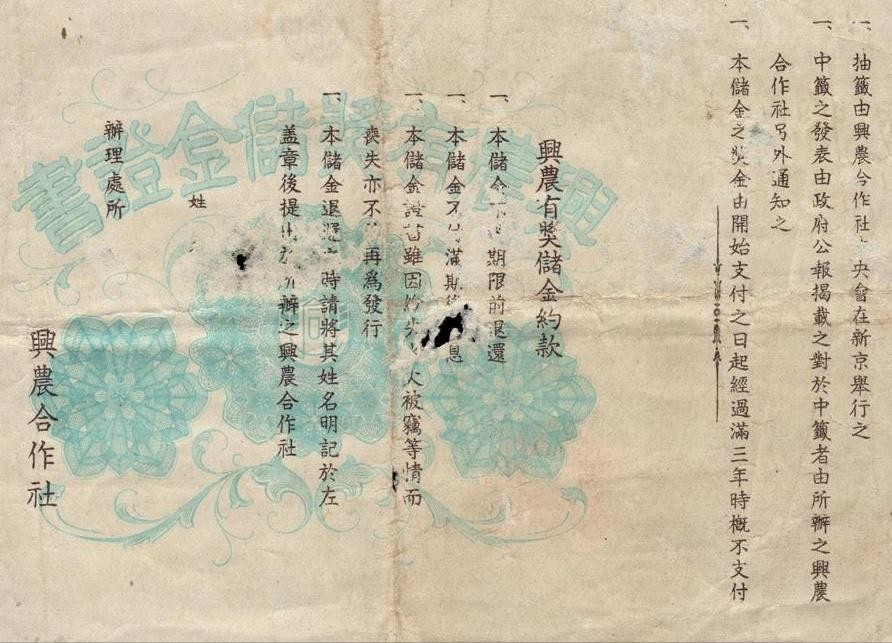 一、抽籤由興農合作社 央會在新京舉行之
一、中籤之發表由政府公報揭載之對於中籤者由所辦之興農
合作社另外通知之
一、本儲金之獎金由開始支付之日起經過滿三年時概不支付
興農有獎儲金約款
一、本儲金 期限前退還
一、本儲金 滿期 息
一、本儲金證書雖因 火被竊等情而
喪失亦不 再為發行
一、本儲金退還 時請將其姓名明記於左
蓋章後提 所辦之興農合作社
姓
辦理處所
興農合作社
興農有獎儲金證書